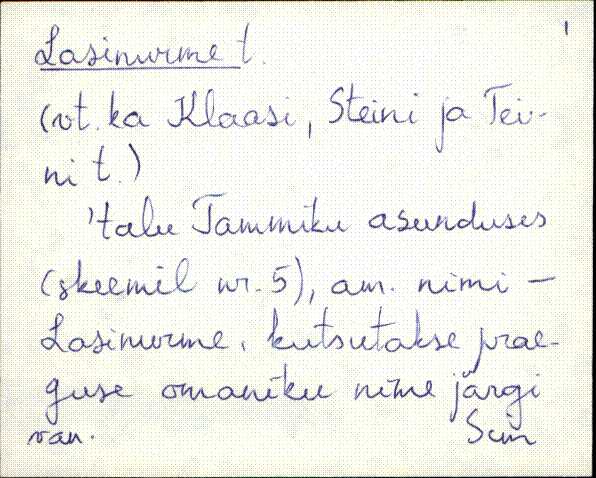 1
Lasinurme t.
(vt. ka Klaasi, Steini ja Tei-
ni t.)
'talu Tammiku asunduses
(skeemil nr. 5), am. nimi –
Lasinurme, kutsutakse prae-
guse omaniku nime järgi
van.